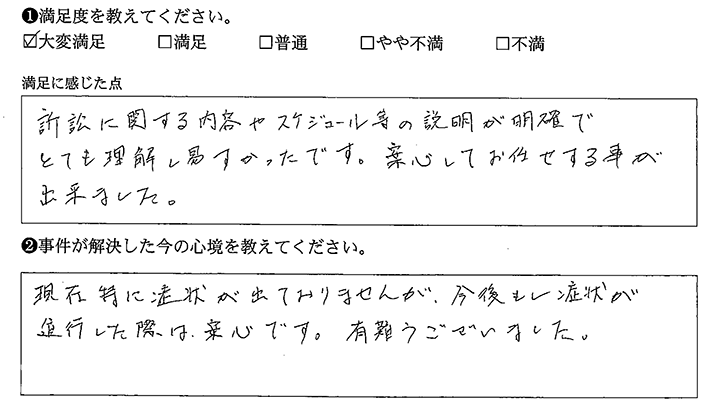 ❶満足度を教えてください。
☑大変満足 □満足 □普通 □やや不満 □不満
満足に感じた点
訴訟に関する内容やスケジュール等の説明が明確で
とても理解し易すかったです。安心してお任せする事が
出来ました。
❷事件が解決した今の心境を教えてください。
現在特に症状が出ておりませんが、今後もし症状が
進行した際は、安心です。有難うございました。